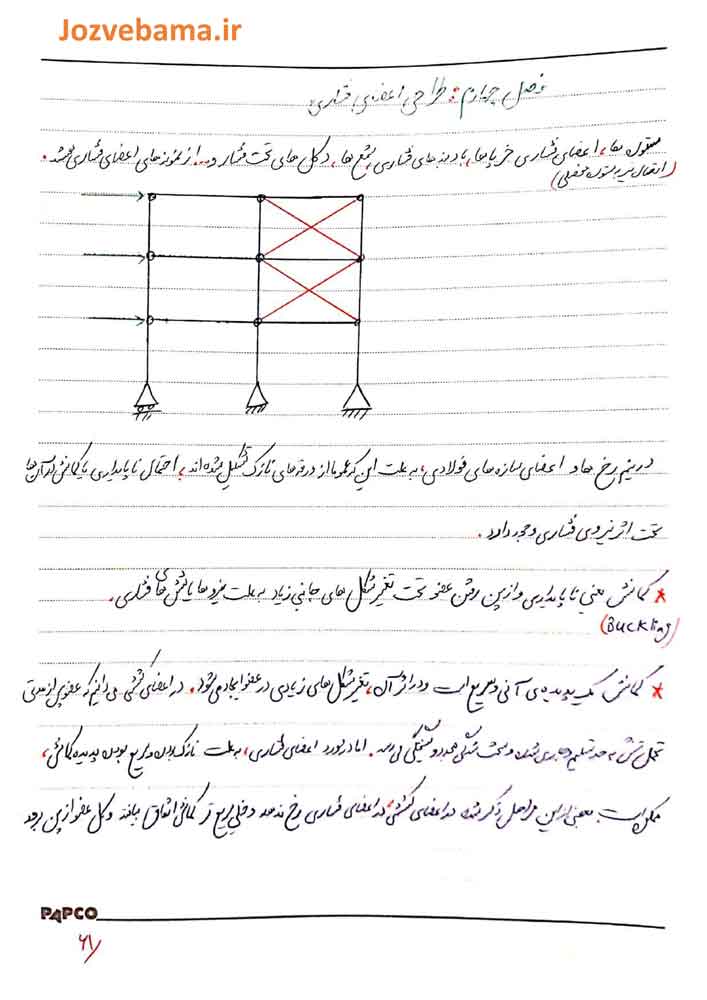 Jozvebama.ir
فصل چهارم: طراحی اعضای فشاری:
ستون ها، اعضای فشاری خرپاها، بادبندهای فشاری، شمع ها، دکل های تحت فشار و ... از نمونه های اعضای فشاری هستند.
(انتقال نیرو به ستون مفصلی)
در نیم رخ ها و اعضای سازه های فولادی، به علت این که عموما از ورق های نازک تشکیل شده اند، احتمال ناپایداری یا کمانش در آن ها
تحت اثر نیروی فشاری وجود دارد.
* کمانش یعنی ناپایداری و از بین رفتن عضو تحت تغییر شکل های جانبی زیاد به علت نیروها یا تنش های فشاری.
(Buckling)
* کمانش یک پدیده ی آنی و سریع است و در اثر آن، تغییر شکل های زیادی در عضو ایجاد می شود. در اعضای کششی می دانیم که عضو پس از مدتی
تحمل تنش به حد تسلیم و جاری شدن و سخت شدگی و گسیختگی می رسد. اما در مورد اعضای فشاری، به علت نازک بودن و سریع بودن پدیده کمانش،
ممکن است بعضی از این مراحل ذکر شده در اعضای کششی، در اعضای فشاری رخ ندهد و خیلی سریع تر کمانش اتفاق بیافتد و کل عضو از بین برود
PAPCO
۶۱